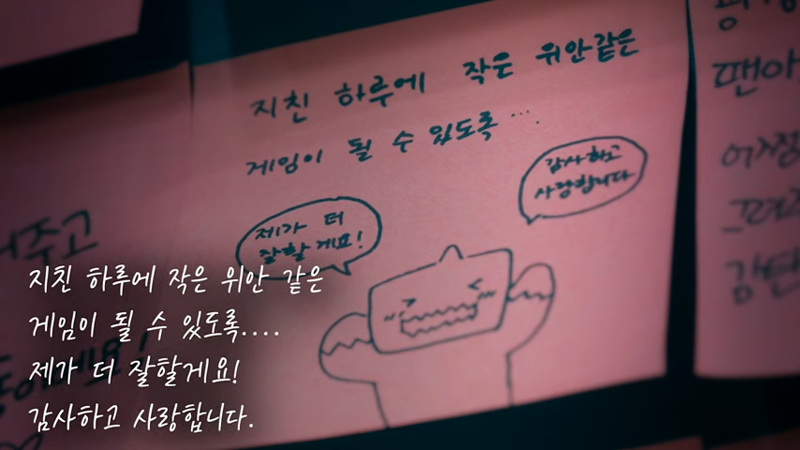 지친 하루에 작은 위안같은
게임이 될 수 있도록...
감사하고
사랑합니다
제가 더
잘할게요!
어주고
땐아
어쩜
그러
감탄
지친 하루에 작은 위안 같은
게임이 될 수 있도록....
제가 더 잘할게요!
감사하고 사랑합니다.